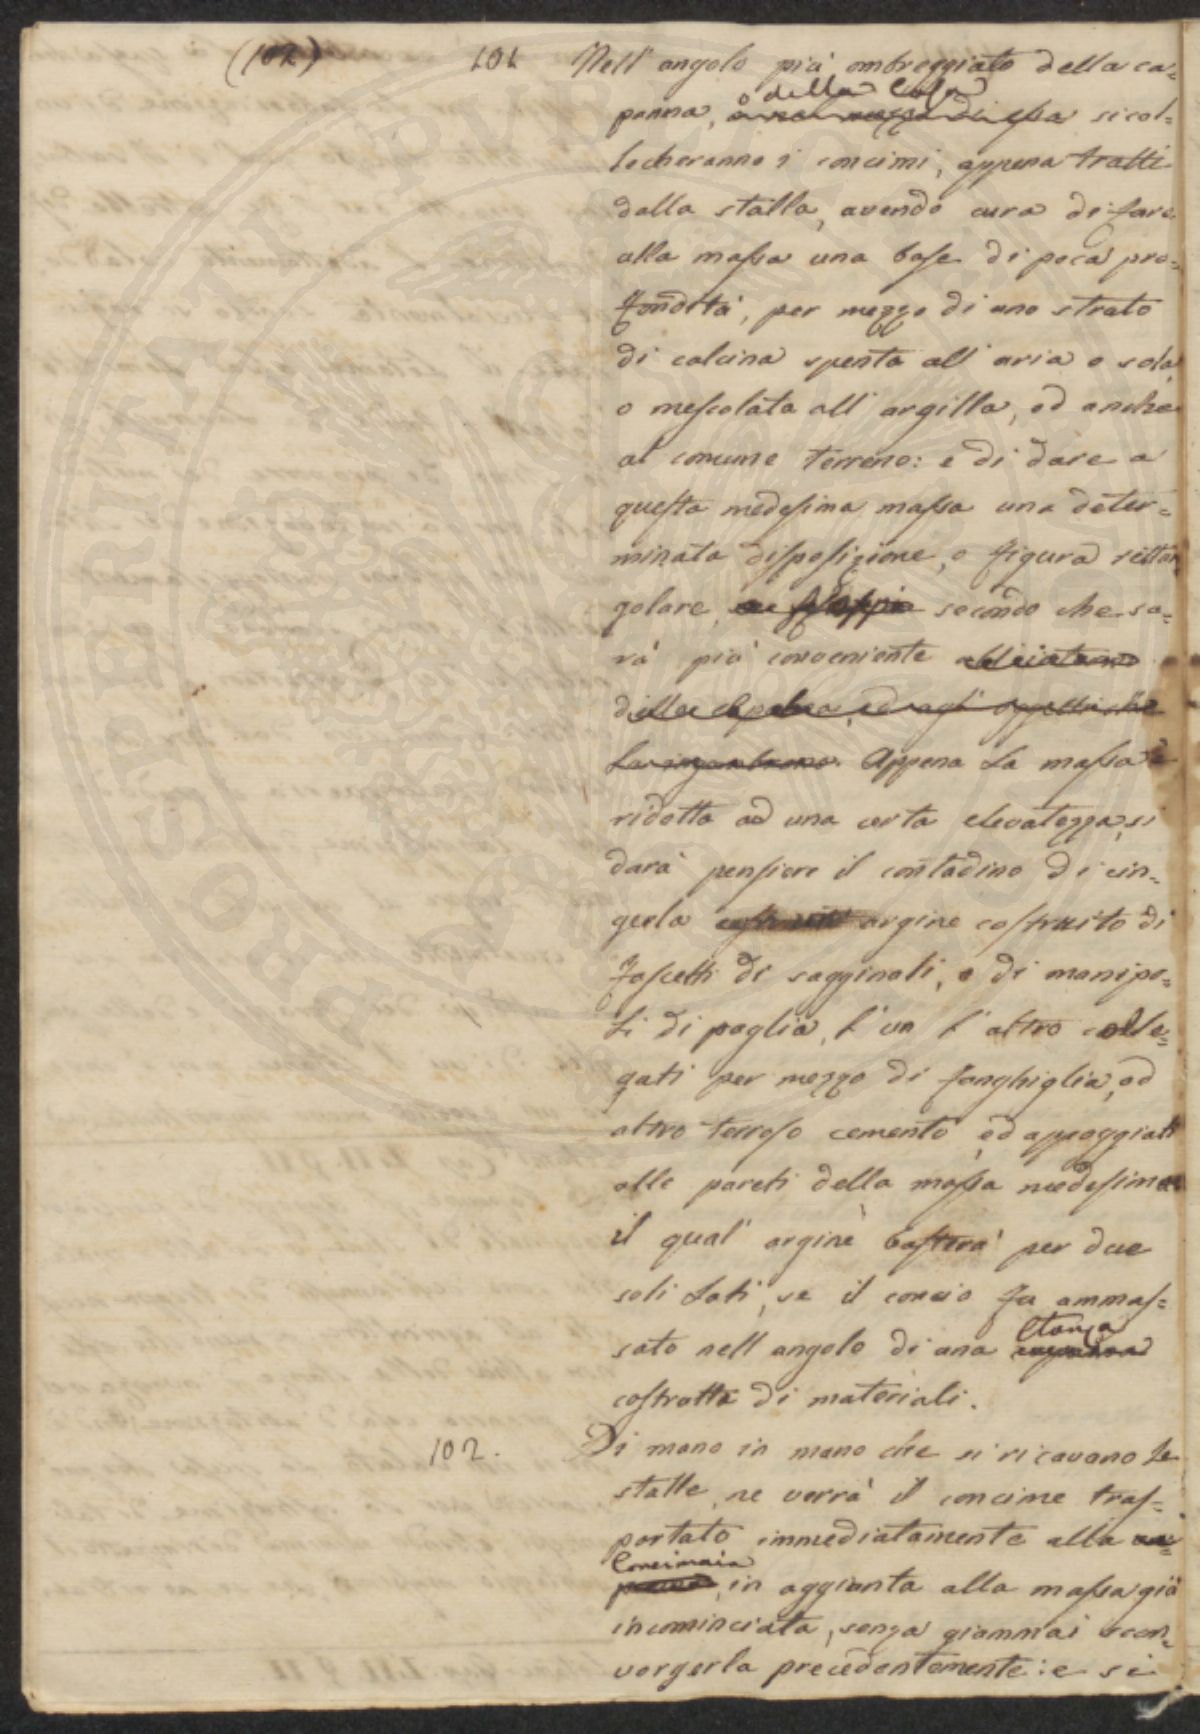 (102) 101 Nell' angolo più ombreggiato della ca-
o della Casa
panna, si col-
locheranno i concimi, appena tratti
dalla stalla, avendo cura di fare
alla massa una base di poca pro-
fondità, per mezzo di uno strato
di calcina spenta all' aria o sola
o mescolata all' argilla, od anche
al comune terreno: e di dare a
questa medesima massa una deter-
minata disposizione, o figura rettan
golare, secondo che sa-
rà più conveniente
della ed agl' oggetti che
La ingombrano. Appena La massa è
ridotta ad una certa elevatezza, si
darà pensiere il contadino di cin-
gerla argine costruito di
fascetti di sagginali, o di manipo-
Li di paglia, l' un l' altro colle-
gati per mezzo di fanghiglia, od
altro terroso cemento, ed appoggiati
alle pareti della massa medesima
il qual' argine basterà per due
soli Lati, se il concio fu ammas-
Stanza
sato nell angolo di una capanna
costrutta di materiali.
102. Di mano in mano che si ricavano Le
stalle, ne verrà il concime tras-
portato immediatamente alla ca-
Concimaia
panna, in aggiunta alla massa già
incominciata, senza giammai scon-
vorgerla precedentemente: e si
PROSPERITATI PUBLICAE